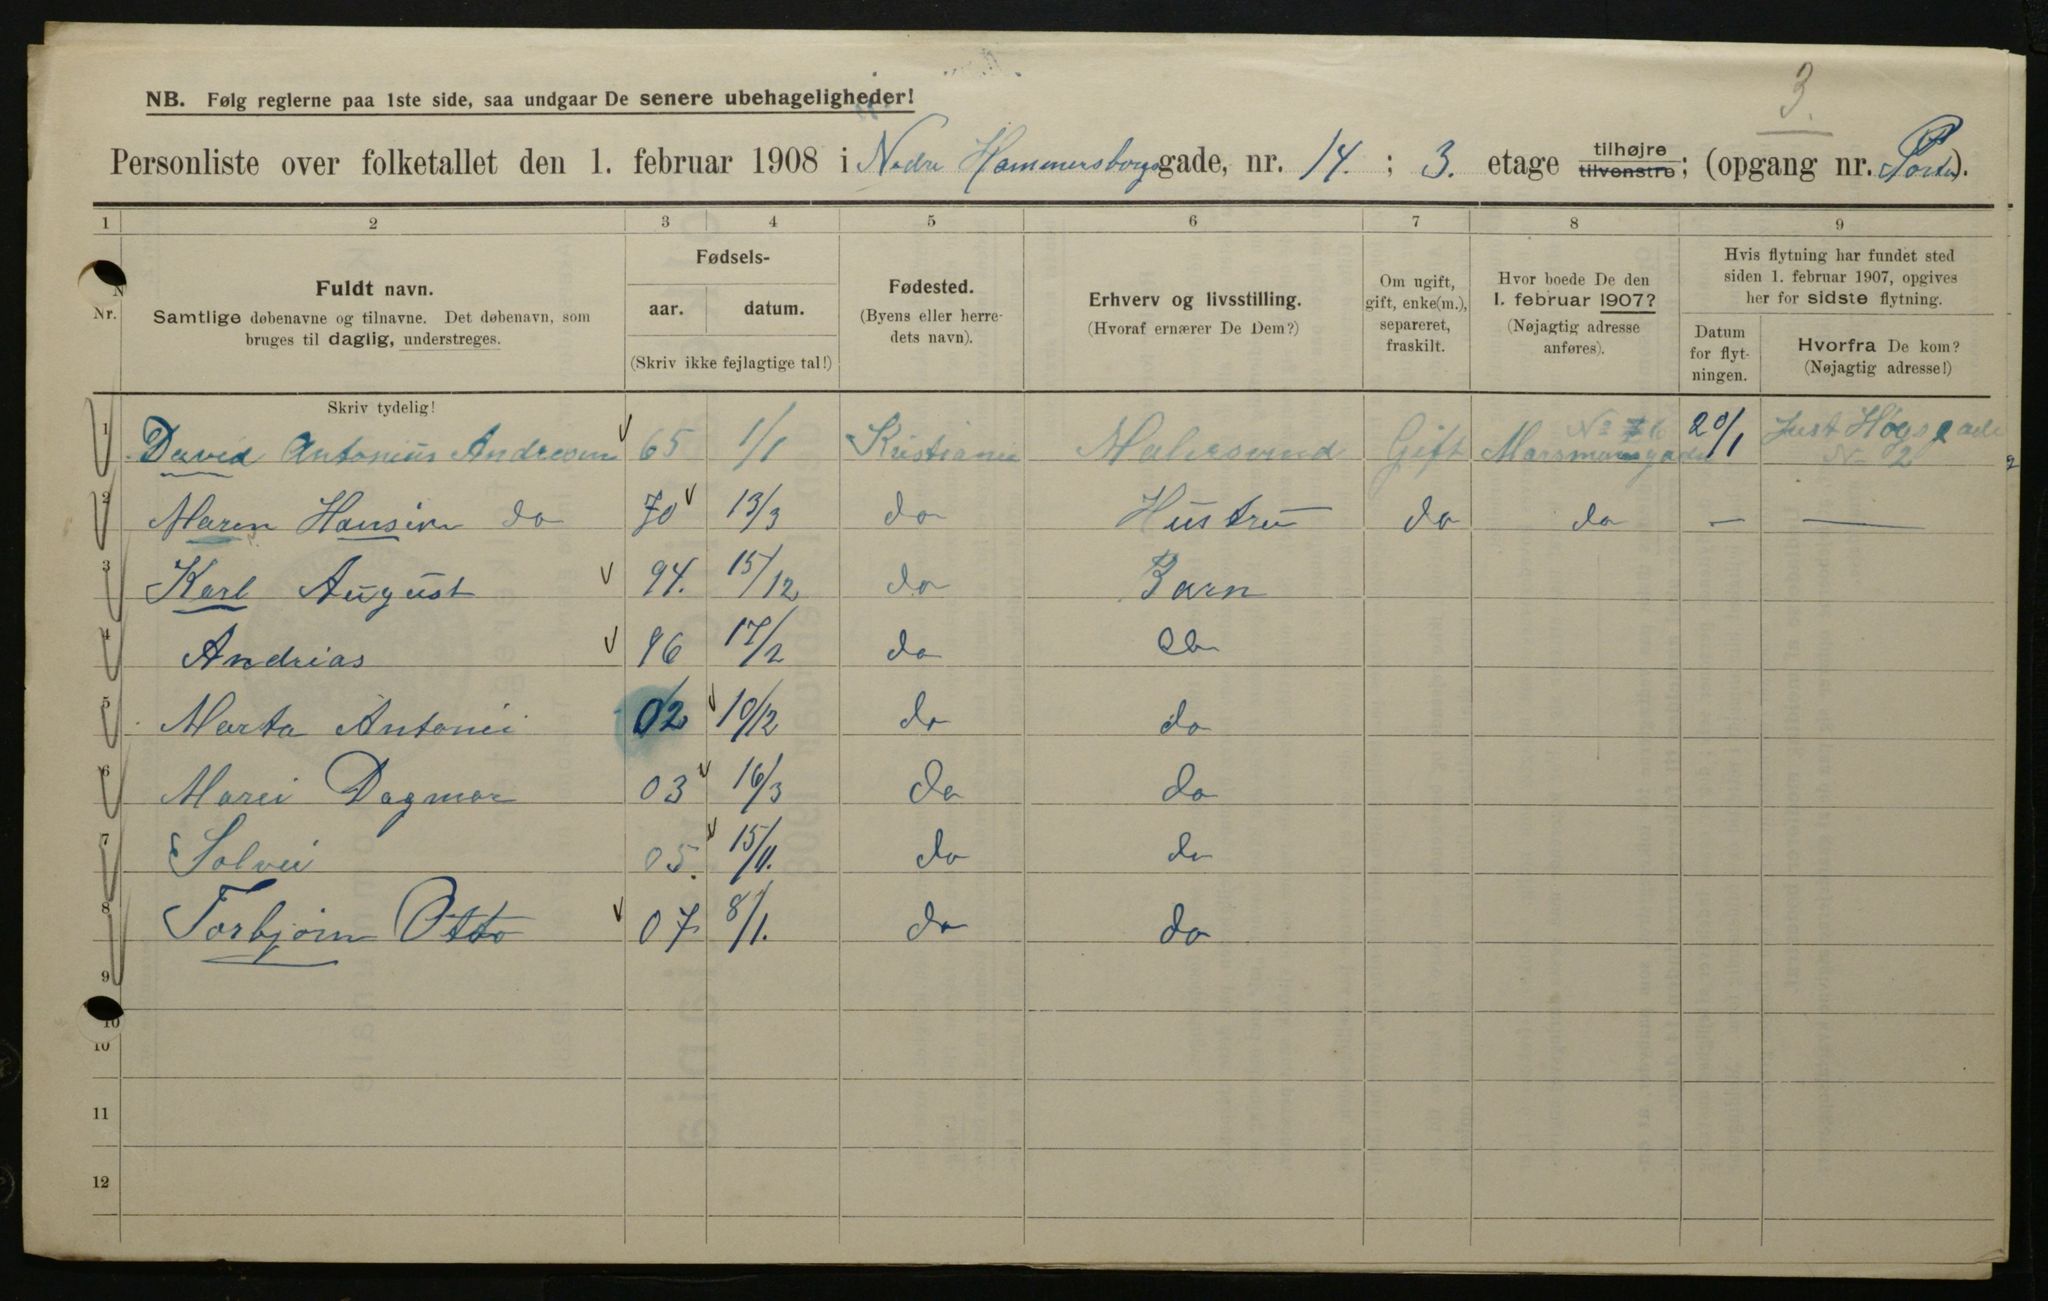 3.
NB. Følg reglerne paa 1ste side, saa undgaar De senere ubehageligheder!
Personliste over folketallet den 1. februar 1908 i Nedre Hammersborg gade, nr. 14. ; 3. etage tilhøjre tilvenstre; (opgang nr. ).
1 2 3 4 5 6 7 8 9
Nr.
Fuldt navn.
Samtlige døbenavne og tilnavne. Det døbenavn, som
bruges til daglig, understreges.
Skriv tydelig!
Fødsels-
aar. datum.
(Skriv ikke fejlagtige tal!)
Fødested.
(Byens eller herre-
dets navn).
Erhverv og livsstilling.
(Hvoraf ernærer De Dem?)
Om ugift,
gift, enke(m.),
separeret,
fraskilt.
Hvor boede De den
1. februar 1907?
(Nøjagtig adresse
anføres).
Hvis flytning har fundet sted
siden 1. februar 1907, opgives
her for sidste flytning.
Datum
for flyt-
ningen.
Hvorfra De kom?
(Nøjagtig adresse!)
1 David Antonius Andresen 65 1/1 Kristiania Malersvend Gift 20/1 Just Høgsgade No 2
2 Maren Hansine do 70 13/3 do Hustru do do — —
3 Karl August 94. 15/12 do Barn
4 Andrias 96 17/2 do do
5 Marta Antonie 02 10/12 do do
6 Marei Dagmar 03 16/3 do do
7 Solvei 05. 15/11. do do
8 Torbjørn Otto 07 8/1. do do
9
10
10
11
12